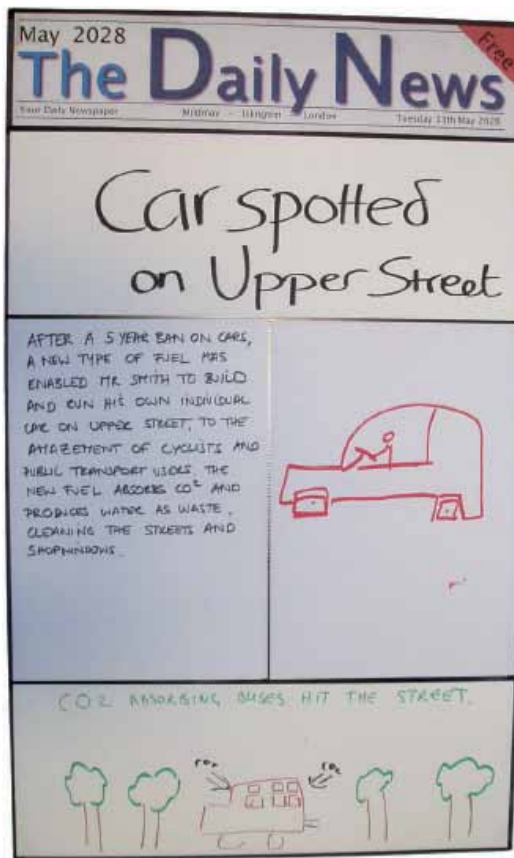 May 2028
Free
The Daily News
Your Daily Newspaper
Mildmay - Islington - London
Tuesday 13th May 2028
Car spotted
on Upper Street
AFTER A 5 YEAR BAN ON CARS,
A NEW TYPE OF FUEL HAS
ENABLED MR SMITH TO BUILD
AND RUN HIS OWN INDIVIDUAL
CAR ON UPPER STREET, TO THE
AMAZEMENT OF CYCLISTS AND
PUBLIC TRANSPORT USERS. THE
NEW FUEL ABSORBS CO² AND
PRODUCES WATER AS WASTE,
CLEANING THE STREETS AND
SHOPWINDOWS.
CO2 ABSORBING BUSES HIT THE STREET.
CO₂
CO₂